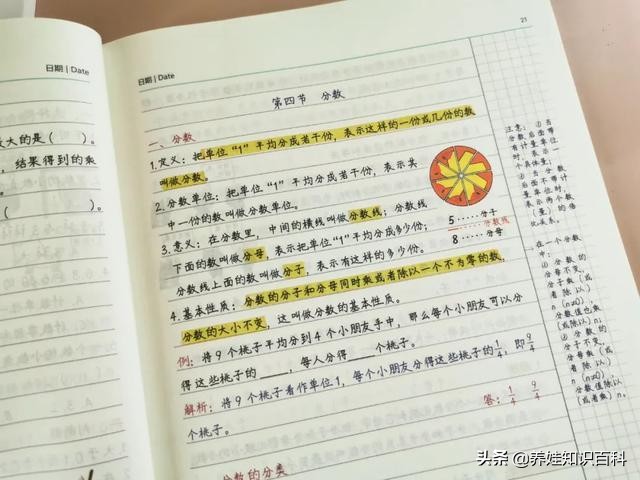 日期 | Date
大的是(  )。
结果得到的乘
(  )。
日期 | Date
21
第四节 分数
一、分数
1.定义:把单位"1"平均分成若干份,表示这样的一份或几份的数
叫做分数。
2.分数单位:把单位"1"平均分成若干份,表示其
中一份的数叫做分数单位。
3.意义:在分数里,中间的横线叫做分数线;分数线
下面的数叫做分母,表示把单位"1"平均分成多少份;
分数线上面的数叫做分子,表示有这样的多少份。
5……分子
分数线
8……分母
4.基本性质:分数的分子和分母同时乘或者除以一个不为零的数,
分数的大小不变,这叫做分数的基本性质。
例:将9个桃子平均分到4个小朋友手中,那么每个小朋友可以分
得这些桃子的____,每人分得____个桃子。
解析:将9个桃子看作单位1,每个小朋友分得这些桃子的1/4,即9/4
个桃子。
答:1/4 9/4
分数的分类
注意:①当
分数后面带
有计量单位
时,表示一
个具体量;
②当分数
后面不带计
量单位时,
表示两个数
(量)的倍
比关系。
在一个分数
中,
①分数的
分母不变,
分子乘(或
者除以)n
(n≠0),
分数值也乘
(或除以)n;
②分数的
分子不变,
分母乘(或
者除以)n
(n≠0)
分数值除以
(或者乘)n。
头条 @养娃知识百科